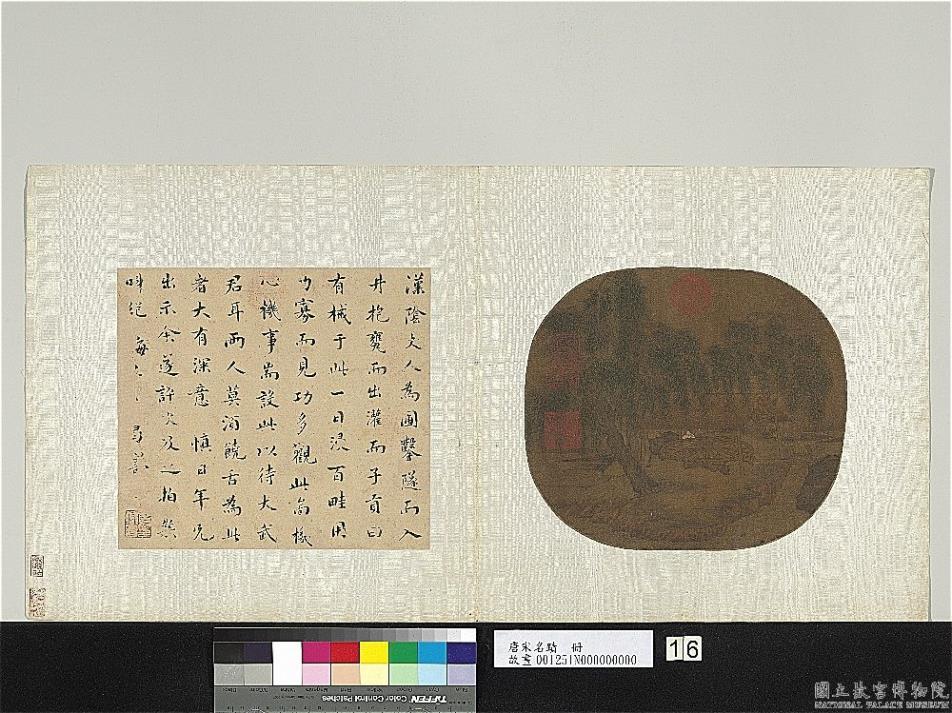 漢陰丈人為圃鑿隧而入
井抱甕而出灌而子貢曰
有械于此一日浸百畦用
力寡而見功多觀此尚機
心機事耑設此以待大武
君耳兩人莫須饒舌為此
者大有深意 慎日年兄
出示余遂許次及之拍案
叫絕
唐宋名蹟 冊
故畫 001251N000000000
16
TIFFEN Color Control Patches
國立故宮博物院
NATIONAL PALACE MUSEUM